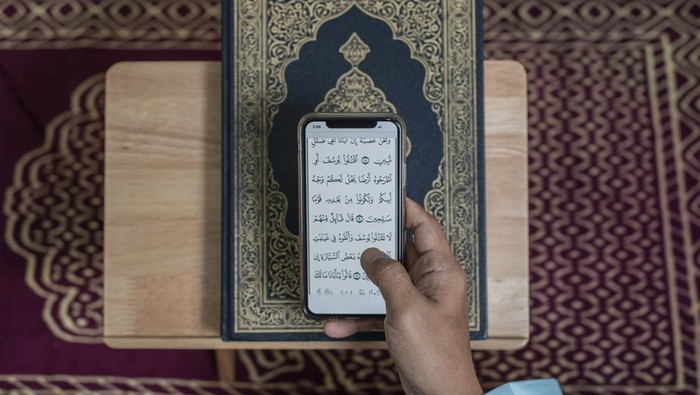 وَنَحْنُ عُصْبَةٌ إِنَّ أَبَانَا لَفِى ضَلَٰلٍ
مُّبِينٍ ٨ ٱقْتُلُوا۟ يُوسُفَ أَوِ
ٱطْرَحُوهُ أَرْضًا يَخْلُ لَكُمْ وَجْهُ
أَبِيكُمْ وَتَكُونُوا۟ مِنۢ بَعْدِهِۦ قَوْمًا
صَٰلِحِينَ ٩ قَالَ قَآئِلٌ مِّنْهُمْ
لَا تَقْتُلُوا۟ يُوسُفَ وَأَلْقُوهُ فِى غَيَٰبَتِ
بَعْضُ ٱلسَّيَّارَةِ إِن
١٠ قَالُوا۟ يَٰٓأَبَانَا مَا لَكَ